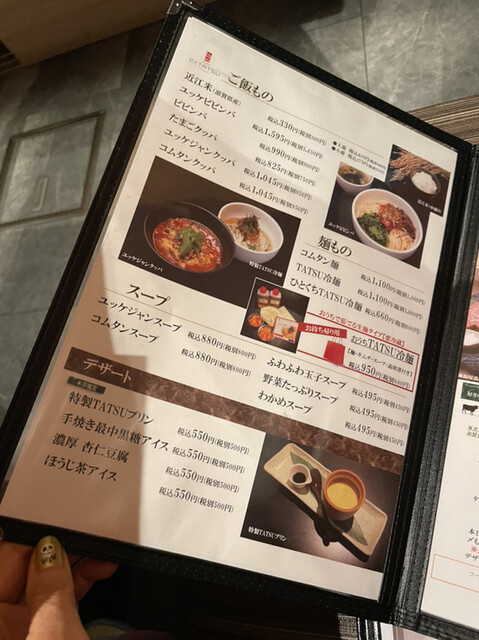 ご飯もの
近江米(滋賀県産) 税込330円(税別300円)
ユッケビビンバ 税込1,595円(税別1,450円)
ビビンバ 税込990円(税別900円)
たまごクッパ 税込825円(税別750円)
ユッケジャンクッパ 税込1,045円(税別950円)
コムタンクッパ 税込1,045円(税別950円)
ユッケビビンバ
ユッケジャンクッパ
特製TATSU冷麺
麺もの
コムタン麺 税込1,100円(税別1,000円)
TATSU冷麺 税込1,100円(税別1,000円)
ひとくちTATSU冷麺 税込660円(税別600円)
おうちで茹でる生麺タイプ【要冷蔵】
お持ち帰り用
おうちTATSU冷麺
税込950円(税別880円)
スープ
ユッケジャンスープ 税込880円(税別800円)
コムタンスープ 税込880円(税別800円)
ふわふわ玉子スープ 税込495円(税別450円)
野菜たっぷりスープ 税込495円(税別450円)
わかめスープ 税込495円(税別450円)
デザート
特製TATSUプリン 税込550円(税別500円)
手焼き最中黒糖アイス 税込550円(税別500円)
濃厚 杏仁豆腐 税込550円(税別500円)
ほうじ茶アイス 税込550円(税別500円)
特製TATSUプリン